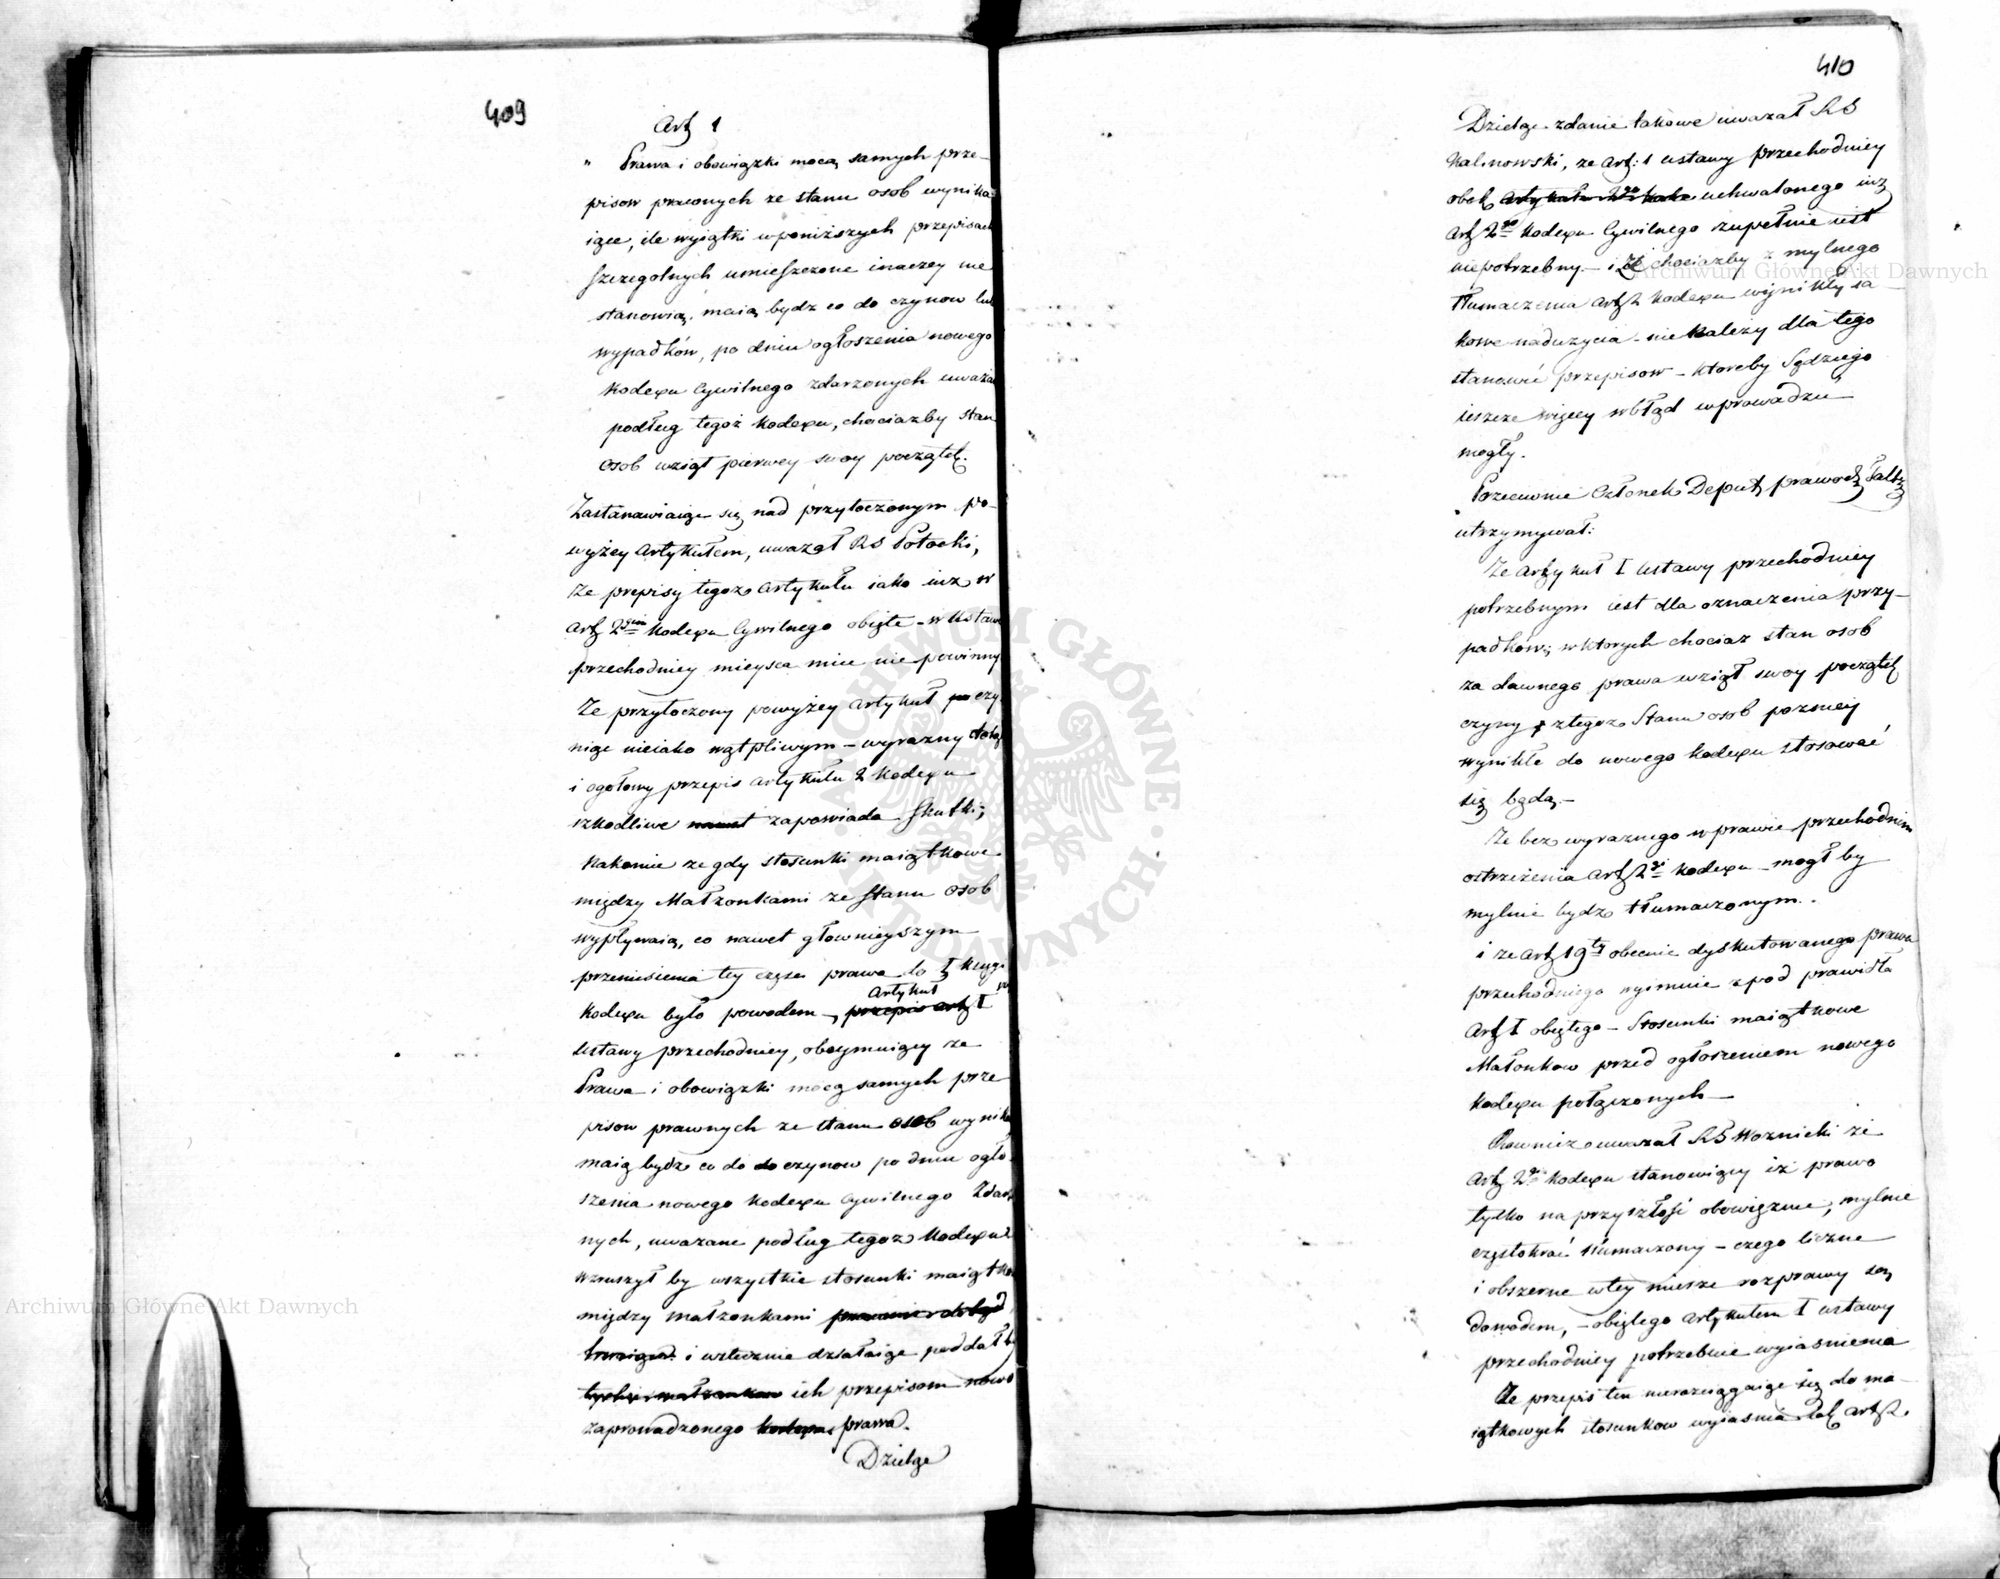 409
Art 1
" Prawa i obowiązki mocą samych prze-
pisow prawnych ze stanu osob wynika
iące, ile wyiątki w poniższych przepisach
szczegolnych umieszczone inaczey nie
stanowią, maią bydź co do czynow lub
wypadków, po dniu ogłoszenia nowego
Kodexu Cywilnego zdarzonych uważa
podług tegoż Kodexu, chociażby stan
osob wziął pierwey swoy początek.
Zastanawiaiąc się nad przytoczonym po-
wyżey Artykułem, uważał RS Potocki,
Że prepisy tegoż Artykułu iako iuż w
Art 2gim Kodexu Cywilnego obięte - w Ustaw
przechodniey mieysca mieć nie powinny
Że przytoczony powyżey Artykuł czy
niąc nieiako wątpliwym - wyrazny
i ogolowy przepis Artykułu 2 Kodexu
szkodliwe zapowiada skutki;
Nakonie ze gdy stosunki maiątkowe
między Małżonkami ze stanu osob
wypływaią, co nawet głownieyszym
przeniesienia tey części prawa do I Xięgi
Artykuł
Kodexu było powodem -, przepis Art I
Ustawy przechodniey, obeymuiący ze
Prawa i obowiązki mocą samych prze
pisow prawnych ze stanu osob wynika
maią bydź co do do czynow po dniu ogło
szenia nowego Kodexu Cywilnego Zdarz
nych, uważane podług tegoż Kodexu
wzruszył by wszystkie stosunki maiątko
między małżonkami
i wstecznie działaiąc poddał by
tychże małżonkow ich przepisom nowo
zaprowadzonego kodexu prawa.
Dzieląc
410
Dzieląc zdanie takowe uważał RS
Kalinowski, że Art: 1 ustawy przechodniey
obok uchwalonego iuż
Art 2go Kodexu Cywilnego zupełnie iest
niepotrzebny - i że chociażby z mylnego
tłumaczenia Art 2 Kodexu wynikły ia
kowe nadużycia - nie należy dla tego
stanowić przepisow - ktoreby Sędziego
ieszcze więcey w błąd wprowadzić
mogły.
Przeciwnie Członek Deput prawod
utrzymywał:
Że Artykuł I Ustawy przechodniey
potrzebnym iest dla oznaczenia przy-
padków; w ktorych chociaż stan osob
za dawnego prawa wziął swoy początek
czyny z tegoż Stanu osob pozniey
wynikłe do nowego kodexu stosować
się będą. -
Że bez wyraznego w prawie przechodnim
ostrzeżenia Art 2gi Kodexu - mogł by
mylnie bydź tłumaczonym.
i że Art 19ty obecnie dyskutowanego prawa
przechodniego wyimuie z pod prawidła
Art I obiętego - Stosunki maiątkowe
Małonkow przed ogłoszeniem nowego
Kodexu połączonych -
Rownież uważał RS Woznicki że
Art 2gi Kodexu stanowiący iż prawo
tylko na przyszłość obowiązuie, mylnie
częstokroć tłumaczony - czego liczne
i obszerne w tey mierze rozprawy są
dowodem, - obiętego Artykułem I ustawy
przechodniey potrzebuie wyiasnienia
Że przepis ten nierozciągaiąc się do ma-
iątkowych stosunkow wyiasnia tak Art 2
Archiwum Główne Akt Dawnych
Archiwum Główne Akt Dawnych
ARCHIWUM GŁÓWNE AKT DAWNYCH